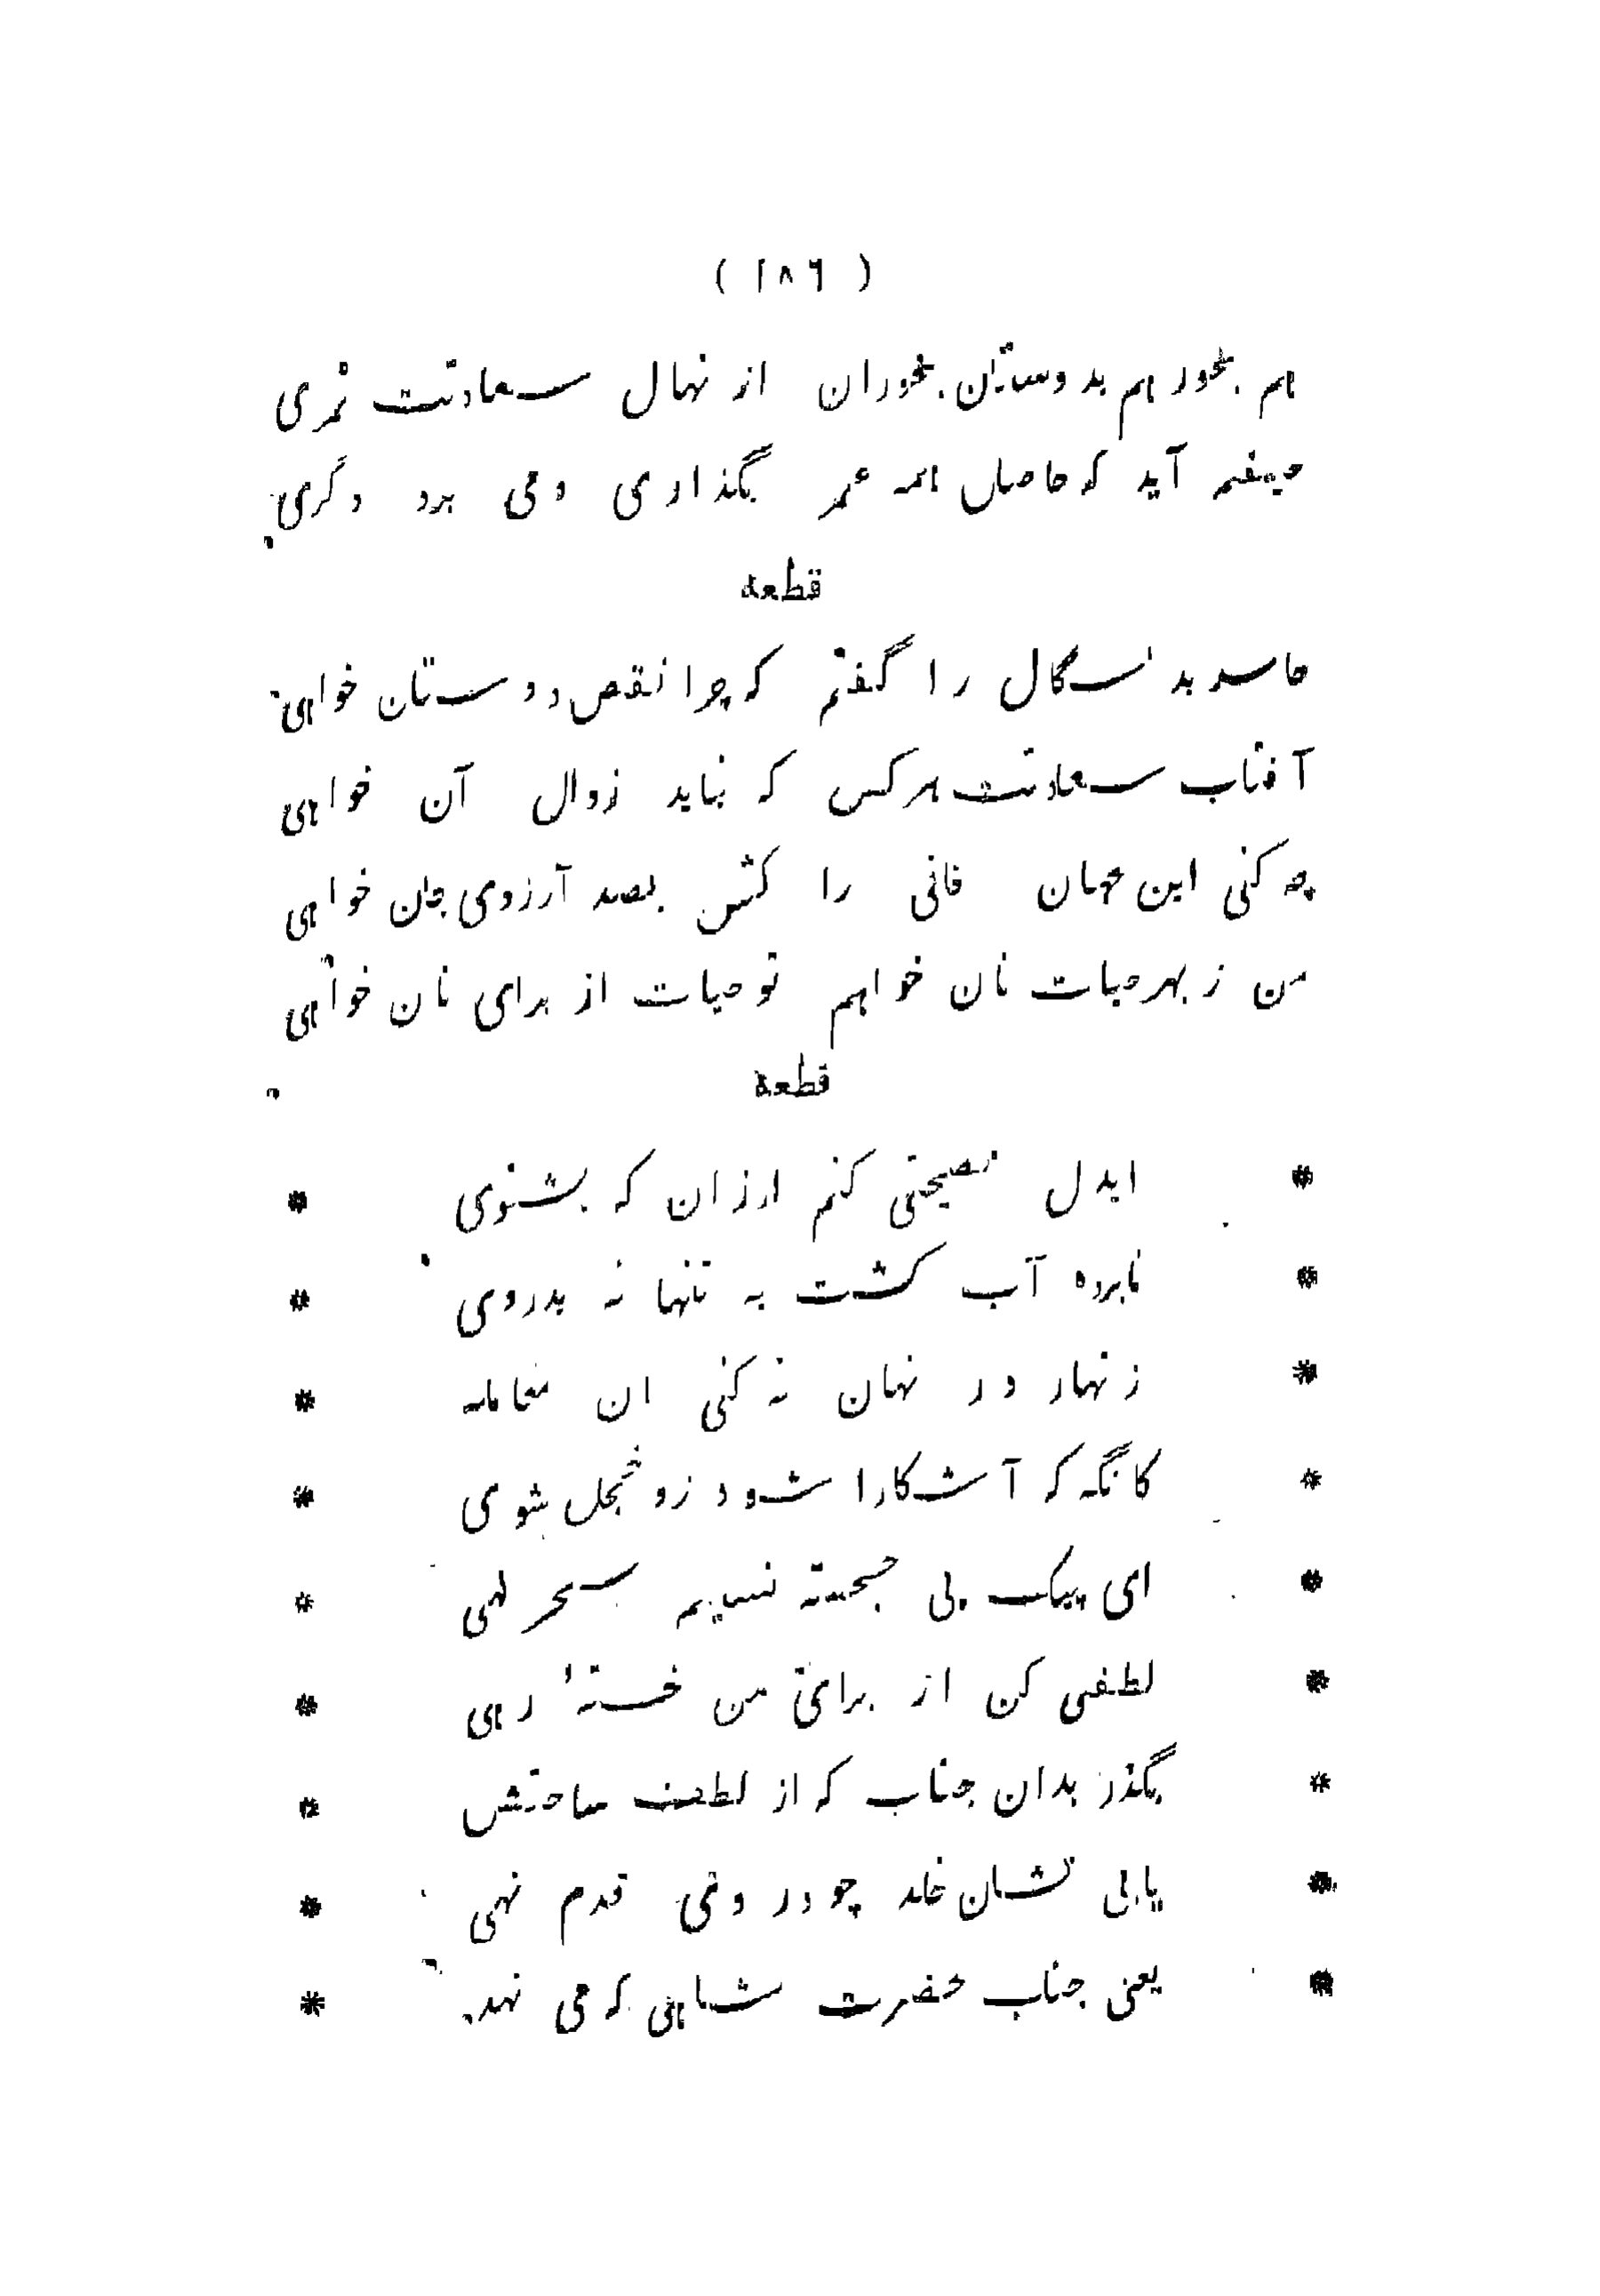 ( ۱۸۶ )
هم بخور هم بدوستان بخوران از نهال سعادت ثمری
حیفم آید که حاصل همه عمر بگذاری و می برد دگری
قطعه
حاسد بد سگال را گفتم که چرا نقص دوستان خواهی
آفتاب سعادت هر کس که بتابد زوال آن خواهی
چه کنی این جهان فانی را کش بصد آرزوی جان خواهی
من ز بهر حیات نان خواهم تو حیات از برای نان خواهی
قطعه
* ایدل نصیحتی کنم ارزان که بشنوی *
* نابرده آب کشت به تنها نه بدروی *
* زنهار در نهان نه کنی ان معامله *
* کانگه که آشکارا شود زو خجل شوی *
* ای پیک پی خجسته نسیم سحر لهی *
* لطفی کن از برای من خستهٔ رهی *
* بگذر بدان جناب که از لطف ساحتش *
* یابی نشان خلد چو در وی قدم نهی *
* یعنی جناب حضرت شاهی که می نهد *